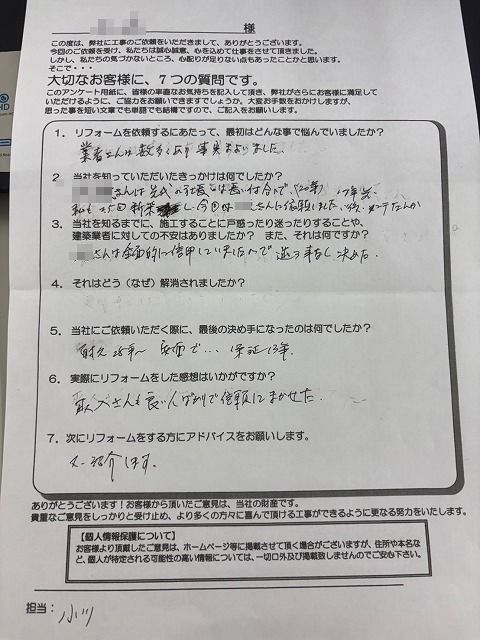 様
この度は、弊社に工事のご依頼をいただきまして、ありがとうございます。
今回のご依頼を受け、私たちは誠心誠意、心を込めて仕事をさせて頂きました。
しかし、私たちの気づかないところ、心配りが足りない点もあったことかと思います。
そこで・・・
大切なお客様に、7つの質問です。
このアンケート用紙に、皆様の率直なお気持ちを記入して頂き、弊社がさらにお客様に満足して
いただけるように、ご協力をお願いできますでしょうか。大変お手数をおかけしますが、
思った事を短い文章でも単語でも結構ですので、ご記入をお願いします。
1. リフォームを依頼するにあたって、最初はどんな事で悩んでいましたか?
業者さんは数多くあり
2. 当社を知っていただいたきっかけは何でしたか?
さんは
私も
今回は
さんに依頼しました
3. 当社を知るまでに、施工することに戸惑ったり迷ったりすることや、
建築業者に対しての不安はありましたか? また、それは何ですか?
さんは全面的に信用していましたので迷う事なく決めた.
4. それはどう(なぜ)解消されましたか?
5. 当社にご依頼いただく際に、最後の決め手になったのは何でしたか?
耐久
で… 保証
6. 実際にリフォームをした感想はいかがですか?
さんも良い人ばかりで信頼してまかせた.
7. 次にリフォームをする方にアドバイスをお願いします。
紹介します.
ありがとうございます!お客様から頂いたご意見は、当社の財産です。
貴重なご意見をしっかりと受け止め、より多くの方々に喜んで頂ける工事ができるように更なる努力をいたします。
【個人情報保護について】
お客様より頂戴したご意見は、ホームページ等に掲載させて頂く場合がございますが、住所や本名な
ど、個人が特定される可能性の高い情報については、一切口外及び掲載致しませんのでご安心下さい。
担当: 小川